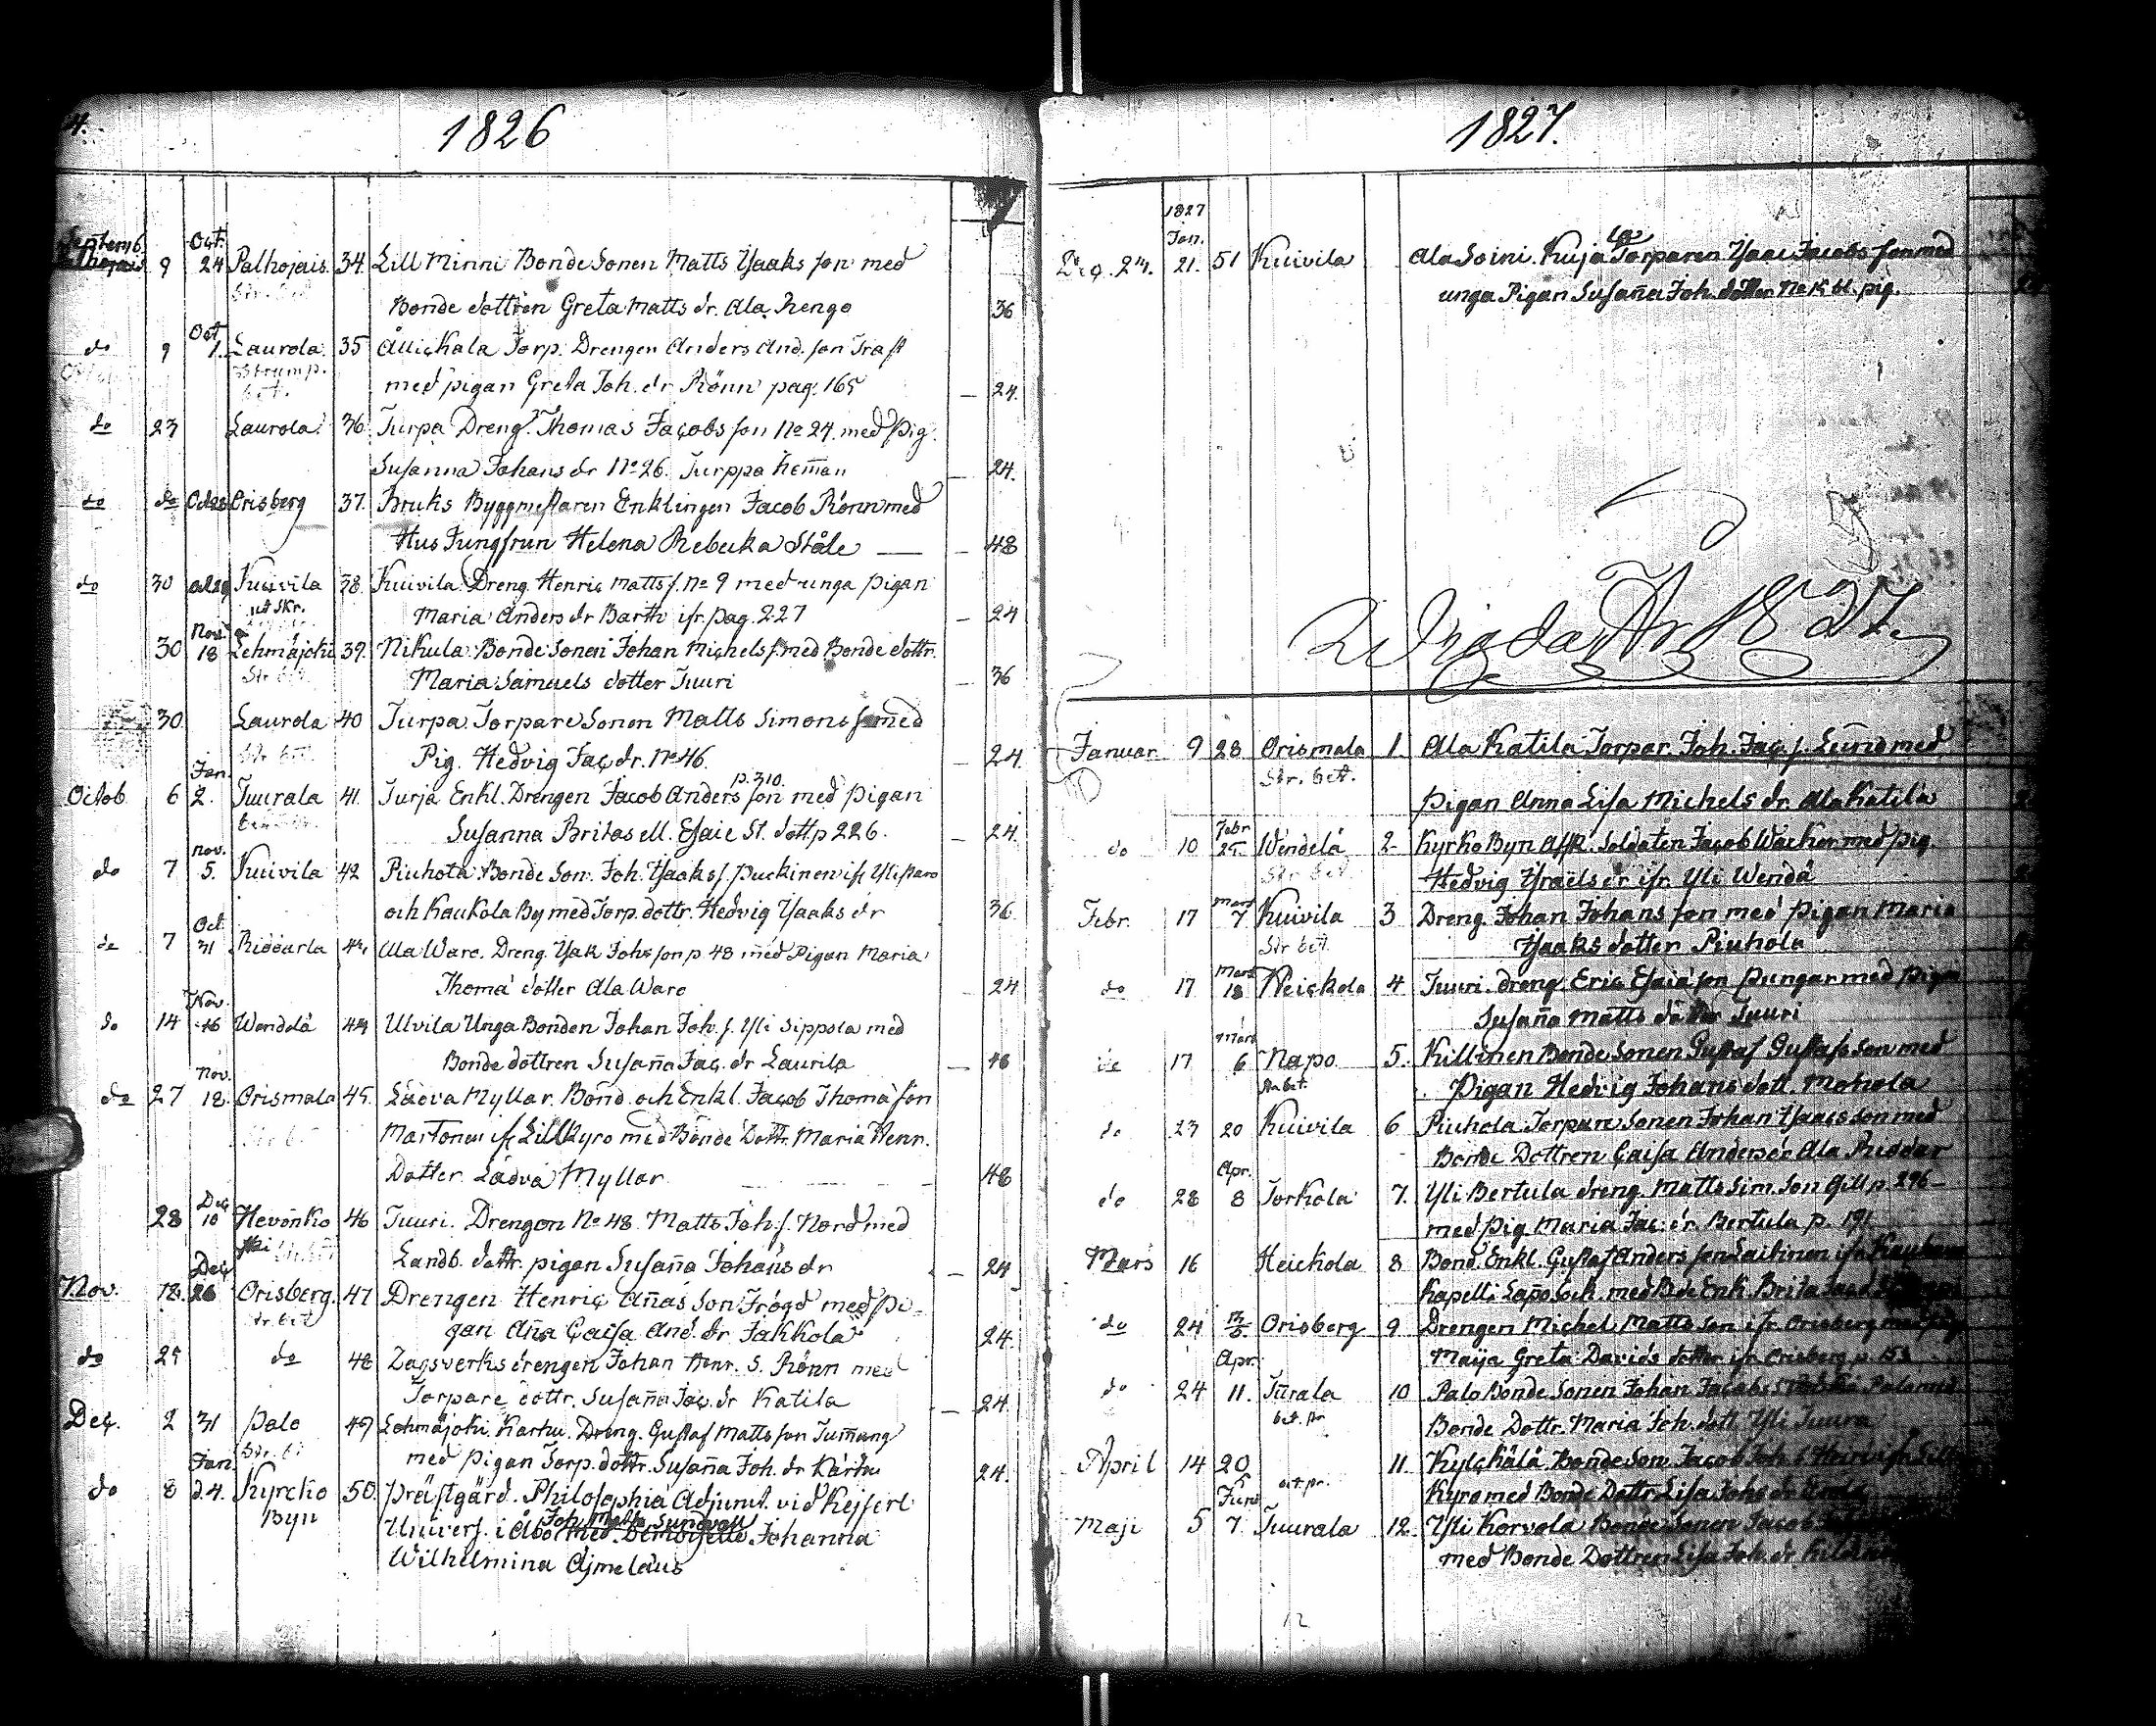 4.
1826
Septemb 9 Oct. 24 Palhojais. 34. Lill Minni Bonde Sonen Matts Ysaaks son med
Str. bet
Bonde dottren Greta Matts dr. Ala Rengo 36
do 9 Oct 1. Laurola. 35 Torp. Drengen Anders And. son Traft
Strump. bet. med pigan Greta Joh. dr Rönn pag. 165 — 24.
do 23 Laurola. 36. Turpa Dreng. Thomas Jacobs son No 24. med Pig.
Susanna Johans dr No 26. Turppa — 24.
do do Orisberg 37. Bruks Byggmestaren Enklingen Jacob Rönn med
Hus Jungfrun Helena Rebecka Ståle — 48
do 30 Kuivila 38. Kuivila Dreng Henric Matts s. No 9 med unga pigan
Maria Anders dr Barth ifr. pag. 227 — 24
30 Nov. 18 Lehmäjoki 39. Nikula Bonde Sonen Johan Michels s. med Bonde dottr.
Str bet. Maria Samuels dotter Juuri — 36
30. Laurola 40 Turpa. Torpare Sonen Matts Simons s med
Str bet. Pig. Hedvig Jac dr. No 46. — 24.
Octob. 6 Jan. 2. Juurala 41. Jurja Enkl. Drengen Jacob Anders son med pigan
p. 310.
Susanna Britas ell. Esaie St. dott p 226. — 24.
do 7 Nov. 5. Kuivila 42 Piuhola Bonde Son. Joh. Ysaaks s. Puckinen if Ylistaro
och Kaukola By med Torp. dottr. Hedvig Ysaaks dr 36.
do 7 Oct 31 Riddarla 43. Ala Ware. Dreng. Ysak Johs son p. 48 med Pigan Maria
Thomä dotter Ala Ware 24
do 14 Nov. 16 Wendelä 44 Ulvila Unga Bonden Johan Joh. s. Yli Sippola med
Bonde dottren Susaña Jac. dr Laurila — 48
do 27 Nov. 18. Orismala 45. Lådva Myllar. Bond. och Enkl. Jacob Thomä son
Martonen if Lillkyro med Bonde Dottr. Maria Henr.
Dotter Lådva Myllar. 48
28 Dec 10 Hevonko 46 Juuri. Drengen No 48. Matts Joh. s. Nord med
Landb. dottr. pigan Susaña Johans dr — 24
Nov. 18. Dec 26 Orisberg. 47 Drengen Henric Añas son Frögd med Pi-
Str. bet gan Aña Caisa And. dr Jakkola 24.
do 25 do 48 Zagsverks drengen Johan Henr. S. Rönn med
Torpare dottr. Susaña Jac. dr Katila — 24.
Dec. 2 31 Palo 49 Lehmäjoki. Karhu. Dreng. Gustaf Matts son
med pigan Torp. dottr. Susaña Joh. dr Karhu 24.
do 8 Jan. 24. Kyrcko Byn 50. Prästgård. Philosophiä Adjunct. vid Kejserl.
Univers. i Åbo Joh. Matts Sundvall med Demoiselle Johanna
Wilhelmina Ajmelæus
1827.
Dec. 24. 1827 Jan. 21. 51 Kuivila Ala Soini. Kuja Torparen Ysaac Jacobs son med
unga Pigan Susaña Joh. dotter No 15 bl. pig.
Wigda År 1827.
Januar. 9 28 Orismala 1. Ala Katila Torpar. Joh. Jac. s. Lund med
Str. bet. pigan Anna Lisa Michels dr. Ala Katila
do 10 Febr 25. Wendelä 2. Kyrko Byn Afsk. Soldaten Jacob Wacker med pig.
Str bet. Hedvig Ysraëls dr ifr. Yli Wendä
Febr. 17 Mars 7 Kuivila 3 Dreng Johan Johans son med pigan Maria
Str bet. Ysaaks dotter Piuhola
do 17 Mars 18 Heickola 4 Juuri. dreng Eric Esaiä son Pungar med pigan
Susaña Matts dotter Juuri
do 17 Mars 6 Napo. 5. Killinen Bonde Sonen Gustaf Gustafs son med
Str bet. Pigan Hedvig Johans dott. Mokola
do 23 20 Kuivila 6 Piuhola Torpare Sonen Johan Ysaacs son med
Bonde Dottren Caisa Anders dr Ala Riddar
do 28 Apr. 8 Torkola 7. Yli Bertula dreng. Matts Sim. Son Gill p. 296 —
med pig. Maria Jac. dr. Bertula p. 191
Mars 16 Heickola 8 Bond. Enkl. Gustaf Anders son Laitinen ifr
Kapell Lapo Sock. med Bde Enk. Brita
do 24 Orisberg 9 Drengen Michel Matts son ifr. Orisberg med
Maija Greta Davids dotter ifr Orisberg p. 153
do 24 Apr. 11. Jurala 10 Palo Bonde Sonen Johan Jacobs
bet. Str Bonde Dottr. Maria Joh. dott. Yli Juura
April 14 20 11. Kylckälä. Bonde Son Jacob Joh. s
Kyro med Bonde Dottr. Lisa Johs dr
Maji 5 Juni 7 Juurala 12. Yli Korvola Bonde Sonen Jacob
med Bonde Dottren Lisa Joh. dr
12